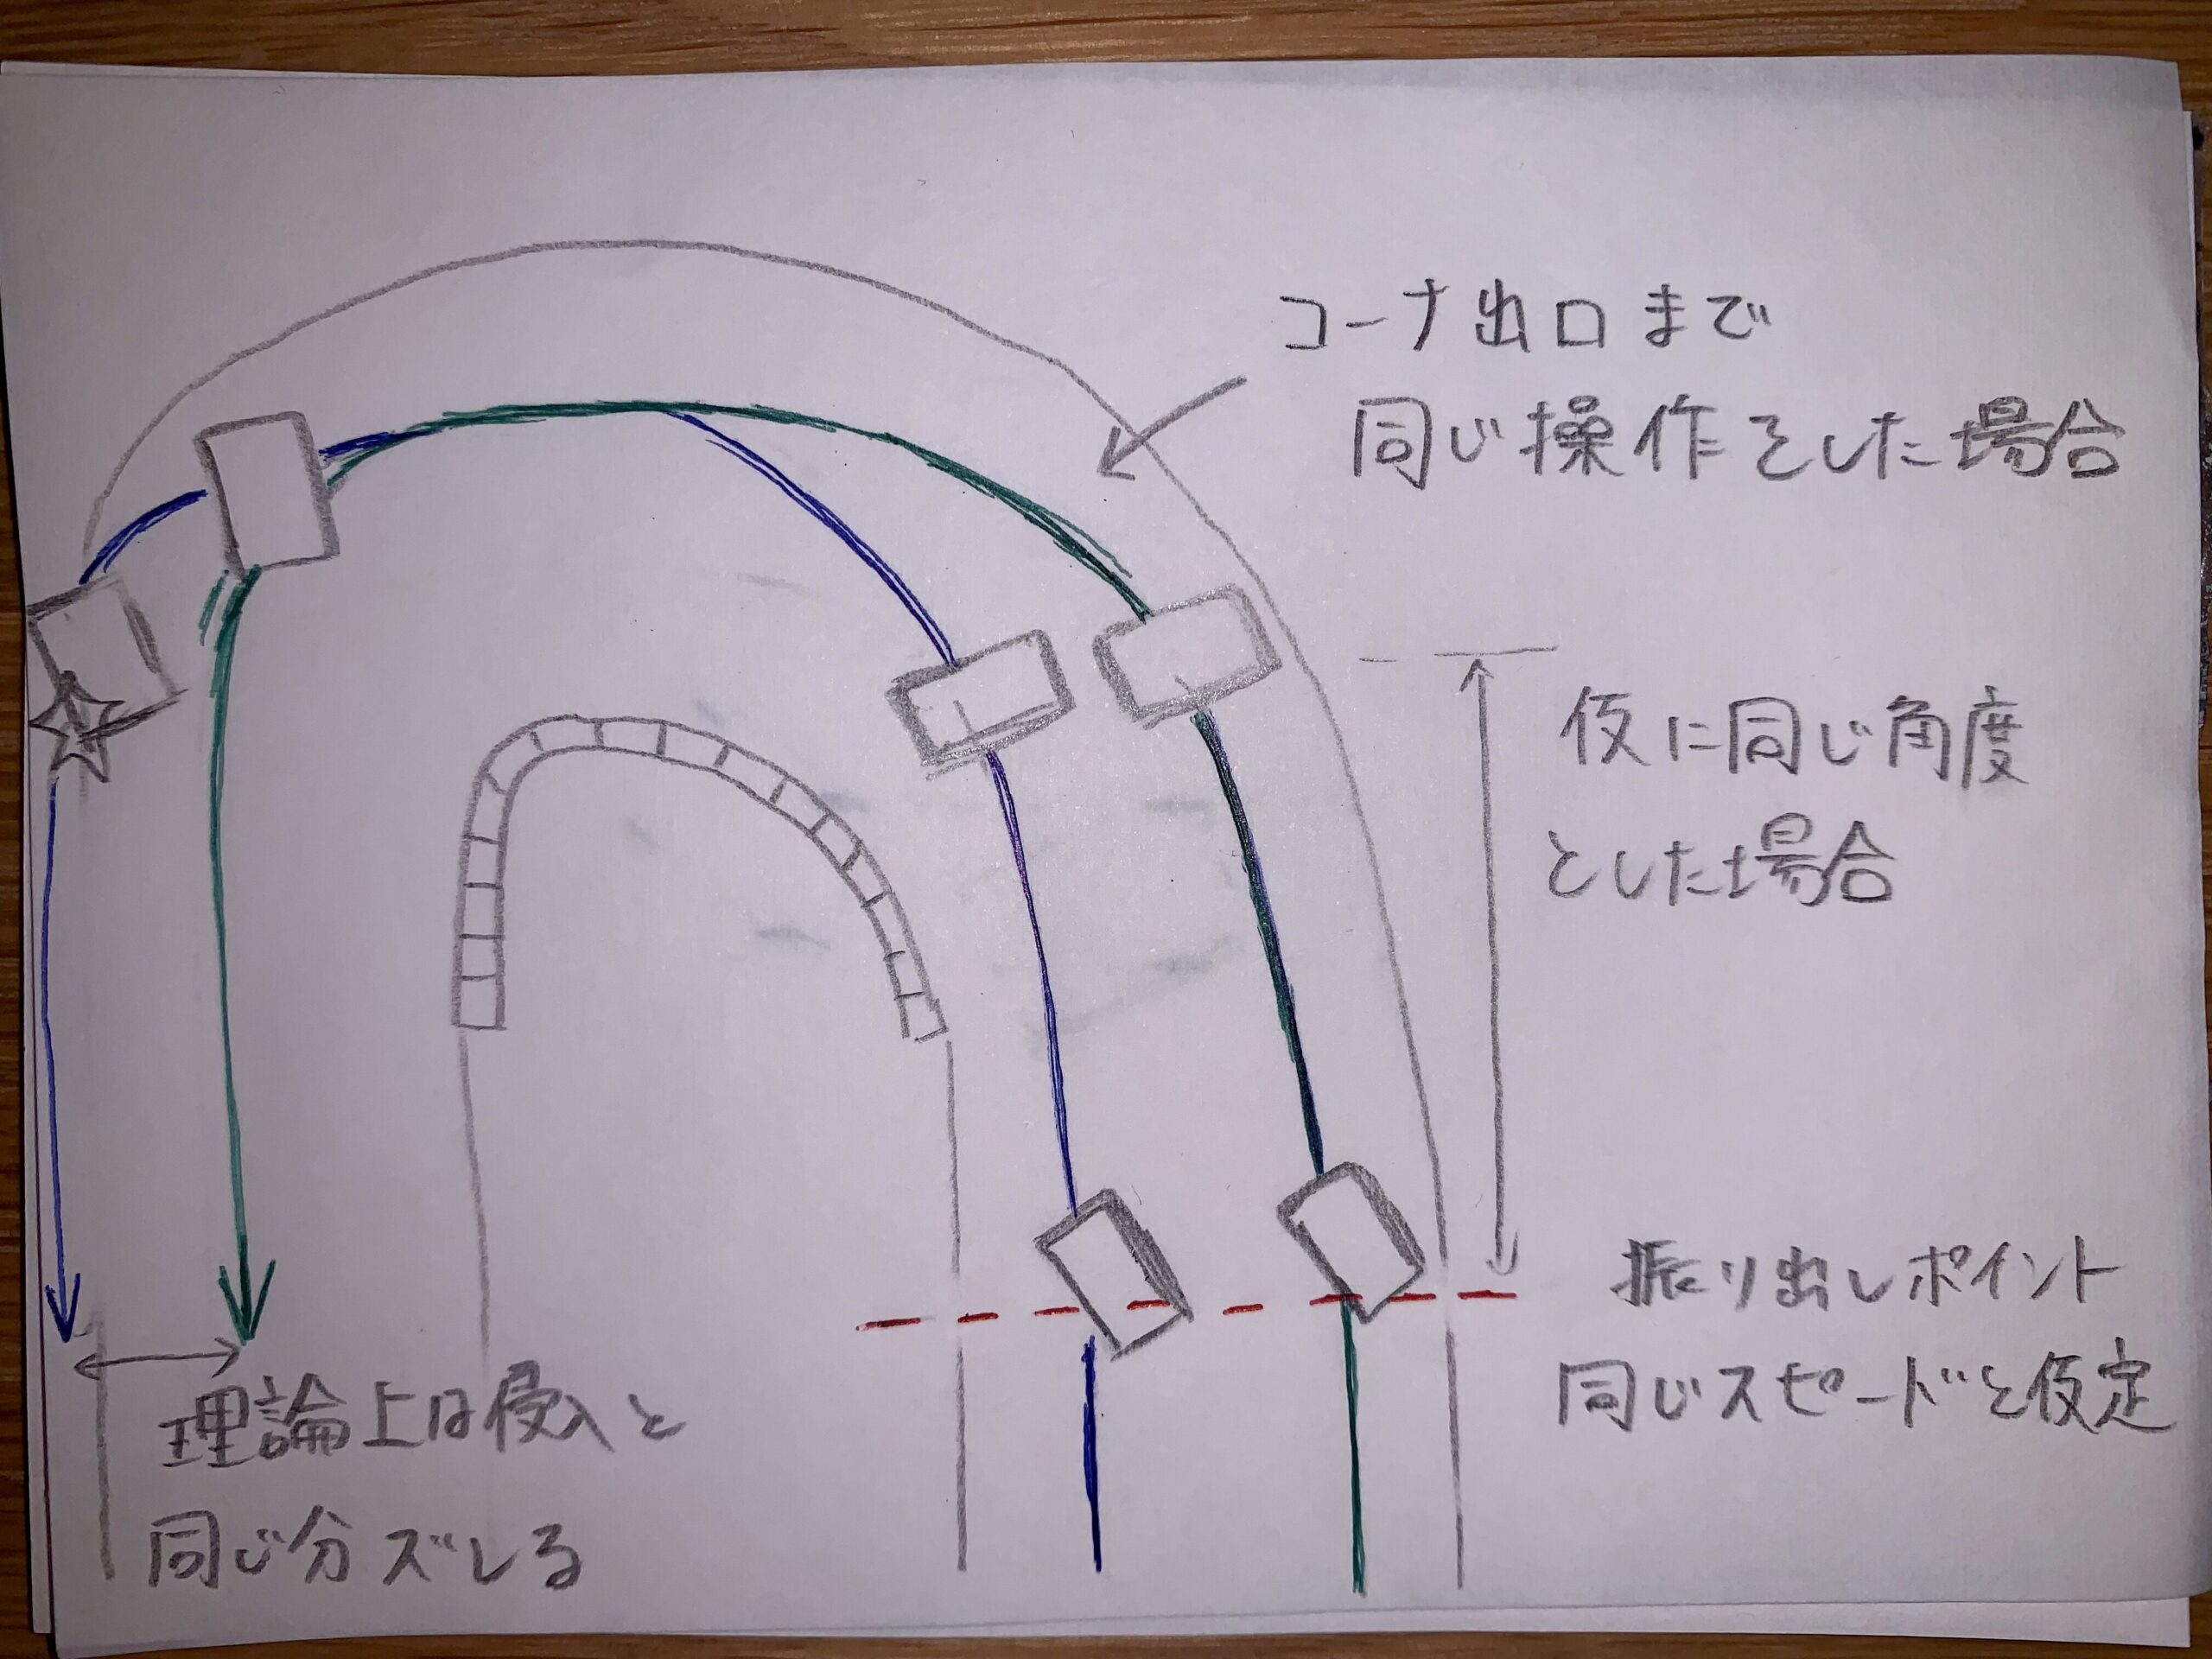 コーナ出口まで
同じ操作をした場合
仮に同じ角度
とした場合
振り出しポイント
同じスピードと仮定
理論上は侵入と
同じ分ズレる